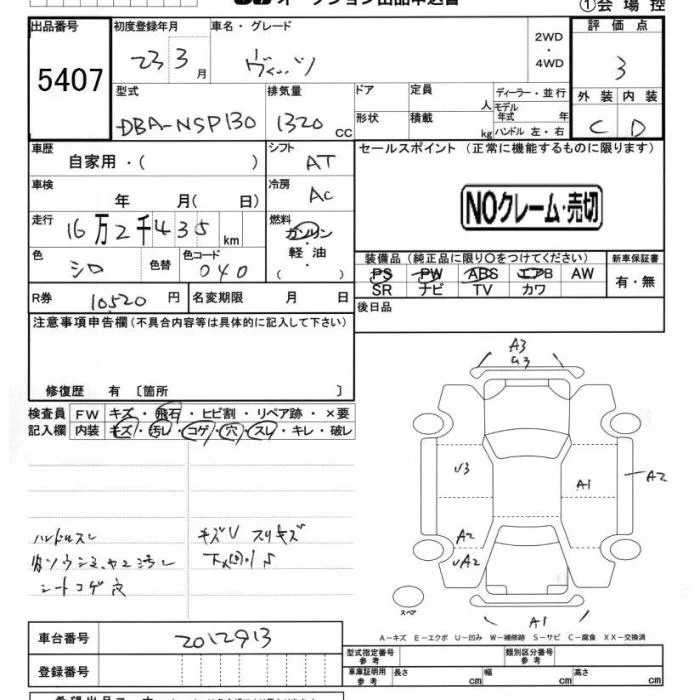 オークション出品申込書 ①会場控
出品番号 初度登録年月 車名・グレード 2WD ・ 4WD 評価点
5407 23 3月 ヴィッツ 3
型式 排気量 ドア 定員 人 ディーラー・並行 外装 内装
DBA-NSP130 1320 CC 形状 積載 kg モデル年式 年 ハンドル 左・右 C D
車歴 自家用・( ) シフト AT セールスポイント (正常に機能するものに限ります)
車検 年 月( 日) 冷房 AC
NOクレーム・売切
走行 16万2千435 km 燃料 ガソリン・軽油 ( )
色 シロ 色替 色コード 040
装備品 (純正品に限り○をつけてください) 新車保証書
PS PW ABS エアB AW 有・無
SR ナビ TV カワ
R券 10520 円 名変期限 月 日 後日品
注意事項申告欄 (不具合内容等は具体的に記入して下さい)
修復歴 有 〔箇所 〕
検査員 FW キズ・飛石・ヒビ割・リペア跡・×要
記入欄 内装 キズ・汚レ・コゲ・穴・スレ・キレ・破レ
A3
U3
A1
A2
A2
UA2
A1
スペア
ハンドルスレ キズU スリキズ
シートコゲ穴
A-キズ E-エクボ U-凹み W-補修跡 S-サビ C-腐食 XX-交換済
車台番号 2012913
型式指定番号 参考 類別区分番号 参考
登録番号 車庫証明用 参考 長さ cm 幅 cm 高さ cm